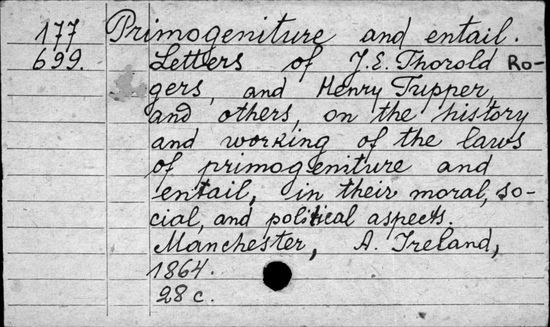 177 Primogeniture and entail.
699. Letters of J.E. Thorold Ro-
gers, and Henry Tupper,
and others, on the history
and working of the laws
of primogeniture and
entail, in their moral, so-
cial, and political aspects.
Manchester, A. Ireland,
1864.
28 c.